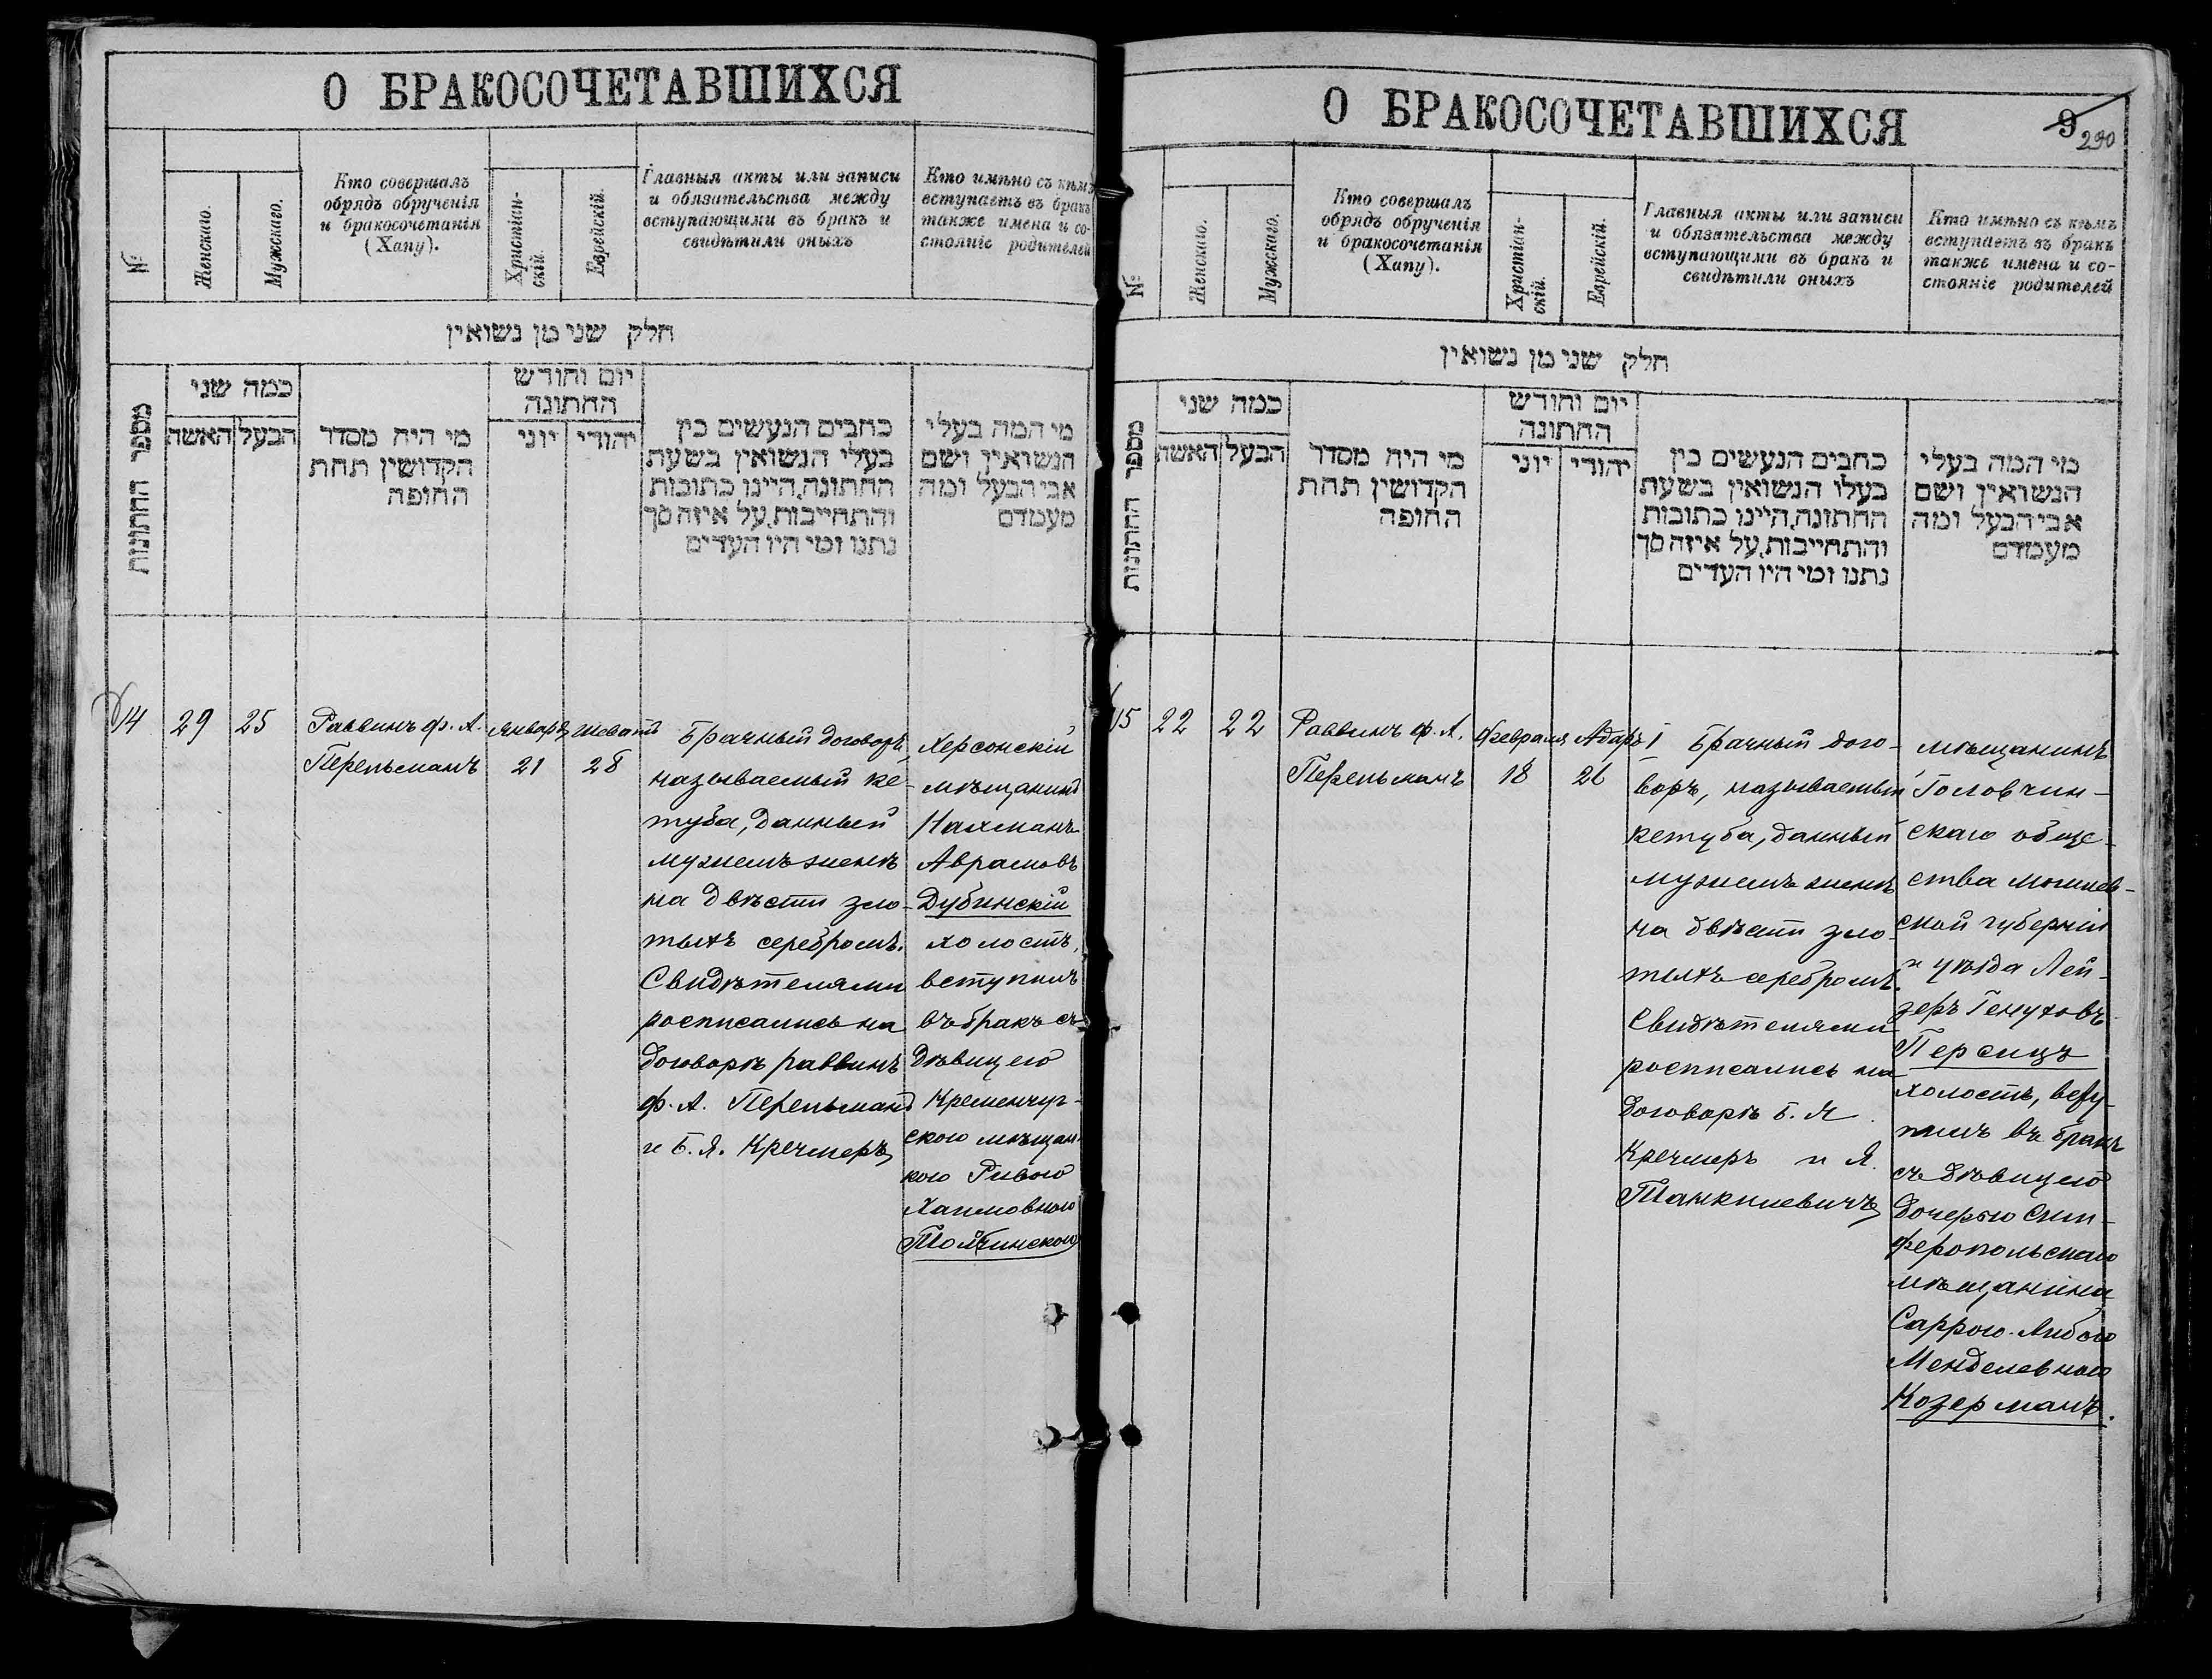 О БРАКОСОЧЕТАВШИХСЯ
№
Женскаго.
Мужскаго.
Кто совершалъ
обрядъ обрученія
и бракосочетанія
(Хапу).
Христіан-
скій.
Еврейскій.
Главныя акты или записи
и обязательства между
вступающими въ бракъ и
свидѣтили оныхъ
Кто имѣно съ кѣмъ
вступаетъ въ бракъ
также имена и со-
стояніе родителей
חלק שני מן נשואין
מספר החתונות
כמה שני
האשה
הבעל
מי היה מסדר
הקדושין תחת
החופה
יום וחודש
החתונה
יוני
יהודי
כתבים הנעשים בין
בעלי הנשואין בשעת
החתונה, היינו כתובות
והתחייבות, על איזה סך
נתנו ומי היו העדים
מי המה בעלי
הנשואין ושם
אבי הבעל ומה
מעמדם
14
29
25
Раввинъ Ф. А.
Перельманъ
Января
21
Шеватъ
28
Брачный договоръ,
называемый ке-
туба, данный
мужемъ женѣ
на двѣсти зло-
тыхъ серебромъ.
Свидѣтелями
росписались на
договорѣ раввинъ
Ф. А. Перельманъ
и Б. Я. Кречмеръ
Херсонскій
мѣщанинъ
Нахманъ
Аврамовъ
Дубинскій
холостъ,
вступилъ
въ бракъ съ
дѣвицею
Кременчуг-
скою мѣщан-
кою Ривою
Хаимовною
О БРАКОСОЧЕТАВШИХСЯ
9
290
№
Женскаго.
Мужскаго.
Кто совершалъ
обрядъ обрученія
и бракосочетанія
(Хапу).
Христіан-
скій.
Еврейскій.
Главныя акты или записи
и обязательства между
вступающими въ бракъ и
свидѣтили оныхъ
Кто имѣно съ кѣмъ
вступаетъ въ бракъ
также имена и со-
стояніе родителей
חלק שני מן נשואין
מספר החתונות
כמה שני
האשה
הבעל
מי היה מסדר
הקדושין תחת
החופה
יום וחודש
החתונה
יוני
יהודי
כתבים הנעשים בין
בעלי הנשואין בשעת
החתונה, היינו כתובות
והתחייבות, על איזה סך
נתנו ומי היו העדים
מי המה בעלי
הנשואין ושם
אבי הבעל ומה
מעמדם
15
22
22
Раввинъ Ф. А.
Перельманъ
Февраля
18
Адаръ I
26
Брачный дого-
воръ, называемый
кетуба, данный
мужемъ женѣ
на двѣсти зло-
тыхъ серебромъ.
Свидѣтелями
росписались на
договорѣ Б. Я.
Кречмеръ и Я.
Танкилевичъ
мѣщанинъ
Головчин-
скаго обще-
ства Могилев-
ской губерніи
и уѣзда Лей-
зеръ Генуховъ
Персицъ
холостъ, всту-
пилъ въ бракъ
съ дѣвицею
дочерью Сим-
феропольскаго
мѣщанина
Саррою-Либою
Менделевною
Козерманъ.